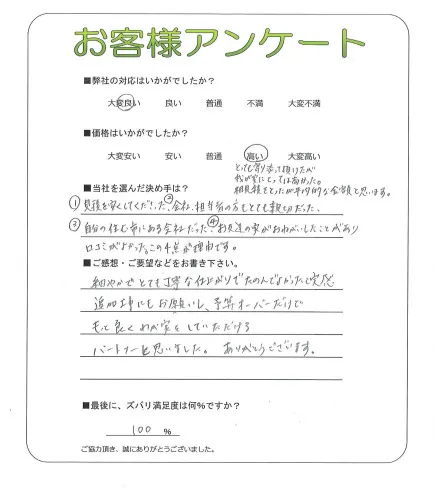 お客様アンケート
■弊社の対応はいかがでしたか？
大変良い 良い 普通 不満 大変不満
■価格はいかがでしたか？
大変安い 安い 普通 高い 大変高い
とても寄り添って頂けたが
我が家にとっては高かった。
相見積をとったが平均的な金額と思います。
■当社を選んだ決め手は？
①見積を安くしてくださった、②会社、担当者の方もとても親切だった、
③自分の住む市にある会社だった、④お友達の家がおねがいしたことがあり
口コミがよかった。この4点が理由です。
■ご感想・ご要望などをお書き下さい。
細やかでとても丁寧な仕上がりでたのんでよかったです
追加工事にもお願いし、予算オーバーだけど
もっと良くわが家をしていただける
パートナーと思いました。ありがとうございます。
■最後に、ズバリ満足度は何％ですか？
100 %
ご協力頂き、誠にありがとうございました。